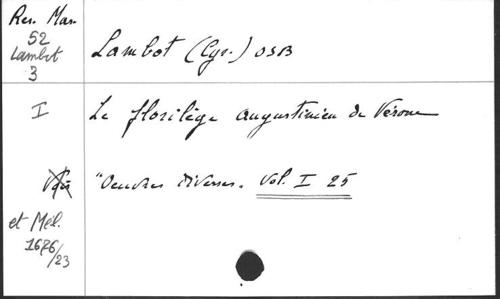 Rev. Mar.
52
Lambot
3
Lambot (Cyr.) OSB
I
Le florilège augustinien de Vérone
"Oeuvres diverses. Vol. I 25
et Mél.
1676/23